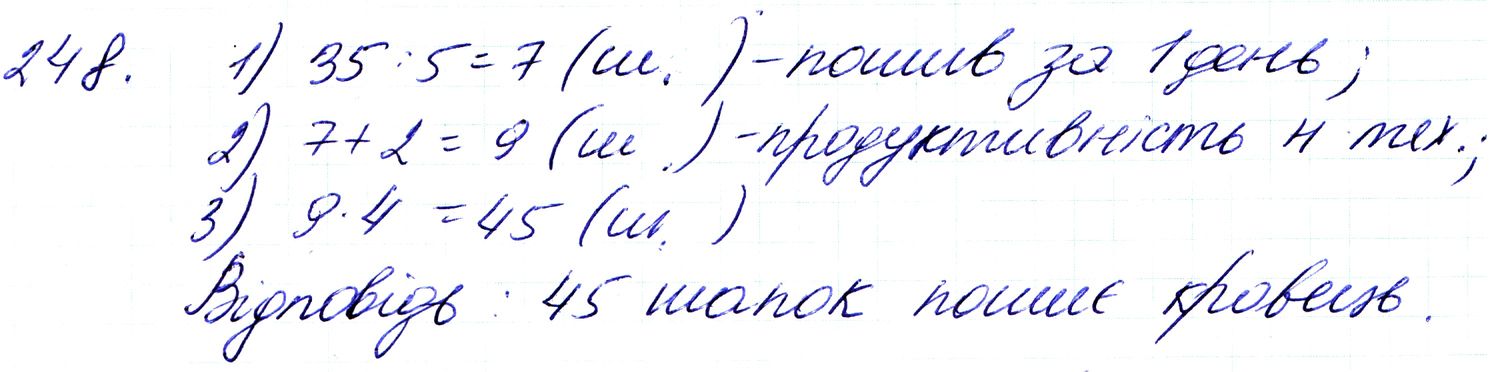 248. 1) 35:5=7 (ш.) - пошив за 1 день;
2) 7+2=9 (ш.) - продуктивність н. тех.;
3) 9·4=45 (ш.)
Відповідь: 45 шапок пошиє кравець.